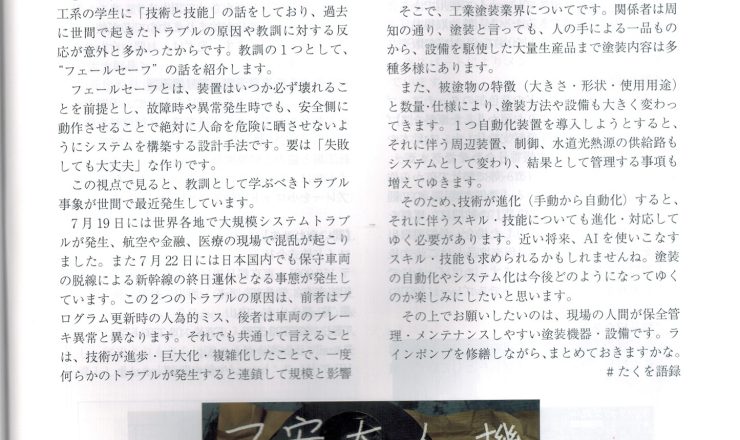 工系の学生に「技術と技能」の話をしており、過去
に世間で起きたトラブルの原因や教訓に対する反
応が意外と多かったからです。教訓の１つとして、
“フェールセーフ”の話を紹介します。
フェールセーフとは、装置はいつか必ず壊れるこ
とを前提とし、故障時や異常発生時でも、安全側に
動作させることで絶対に人命を危険に晒させないよ
うにシステムを構築する設計手法です。要は「失敗
しても大丈夫」な作りです。
この視点で見ると、教訓として学ぶべきトラブル
事象が世間で最近発生しています。
７月19日には世界各地で大規模システムトラブ
ルが発生、航空や金融、医療の現場で混乱が起こり
ました。また７月22日には日本国内でも保守車両
の脱線による新幹線の終日運休となる事態が発生し
ています。この２つのトラブルの原因は、前者はプ
ログラム更新時の人為的ミス、後者は車両のブレー
キ異常と異なります。それでも共通して言えること
は、技術が進歩・巨大化・複雑化したことで、一度
何らかのトラブルが発生すると連鎖して規模と影響
そこで、工業塗装業界についてです。関係者は周
知の通り、塗装と言っても、人の手による一品もの
から、設備を駆使した大量生産品まで塗装内容は多
種多様にあります。
また、被塗物の特徴（大きさ・形状・使用用途）
と数量・仕様により、塗装方法や設備も大きく変わっ
てきます。１つ自動化装置を導入しようとすると、
それに伴う周辺装置、制御、水道光熱源の供給路も
システムとして変わり、結果として管理する事項も
増えてゆきます。
そのため、技術が進化（手動から自動化）すると、
それに伴うスキル・技能についても進化・対応して
ゆく必要があります。近い将来、AIを使いこなす
スキル・技能も求められるかもしれませんね。塗装
の自動化やシステム化は今後どのようになってゆく
のか楽しみにしたいと思います。
その上でお願いしたいのは、現場の人間が保全管
理・メンテナンスしやすい塗装機器・設備です。ラ
インポンプを修繕しながら、まとめておきますかな。
＃たくを語録